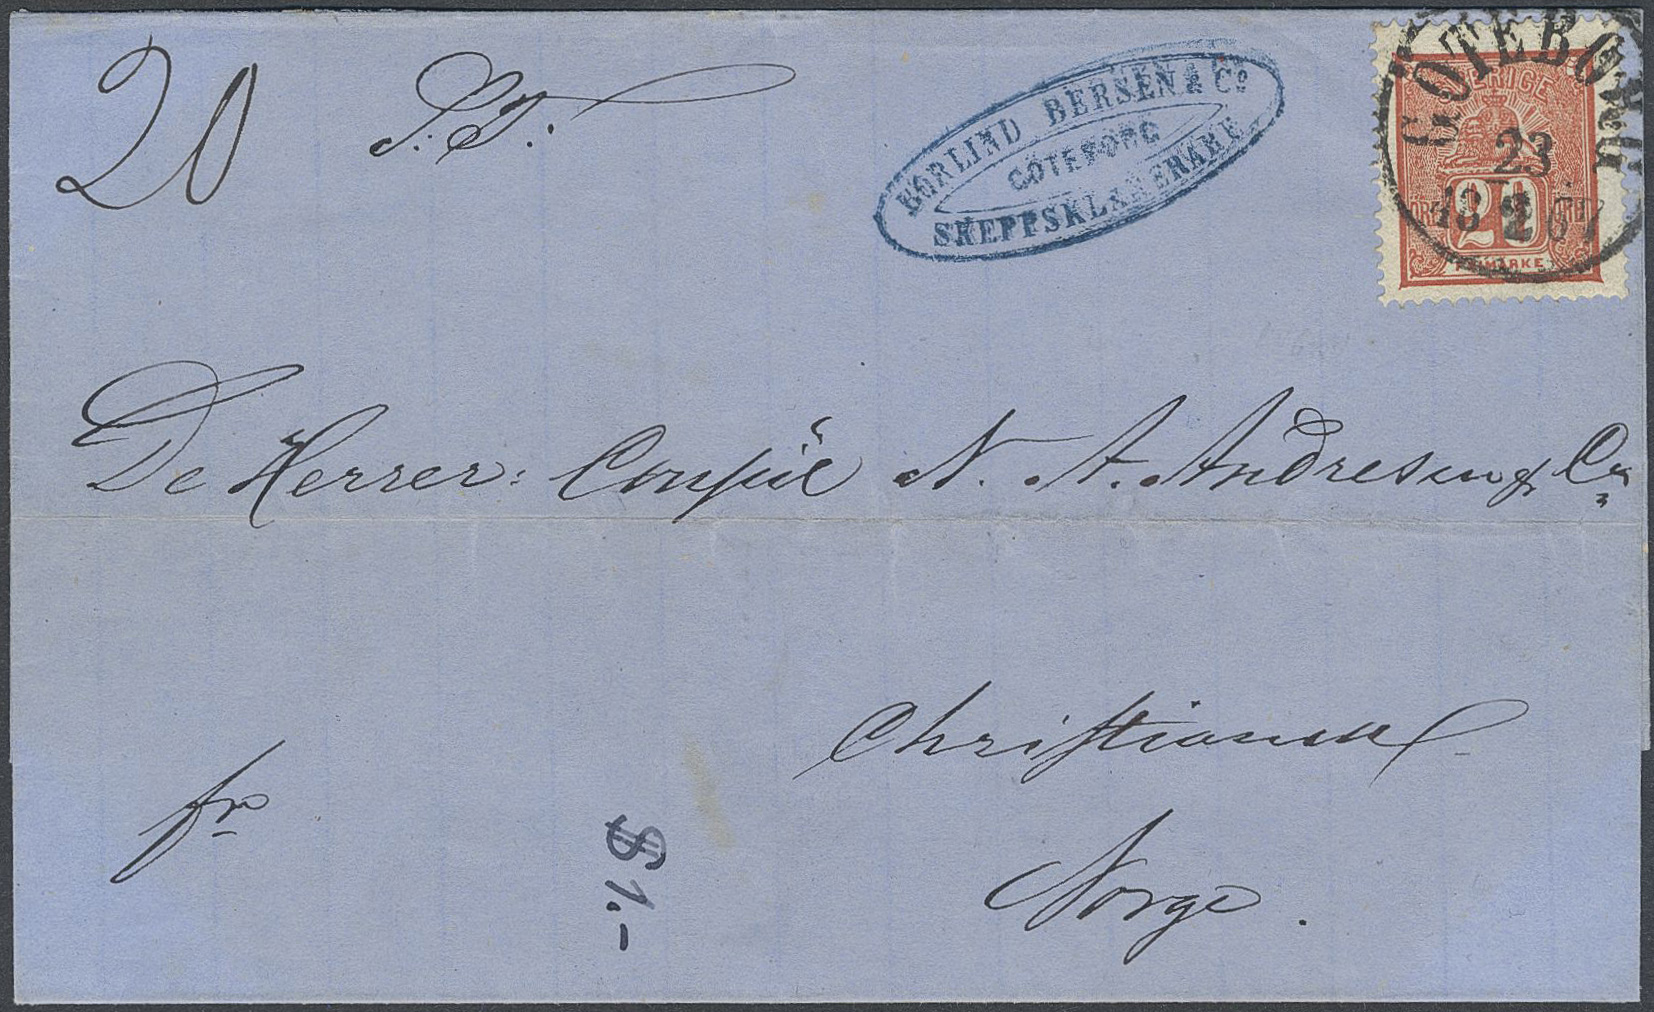 20 S. T.
BORLIND BERSEN & Co
GÖTEBORG
SKEPPSKLARERARE
GÖTEBORG
23
18 2 67
SVERIGE
ÖRE 20 ÖRE
FRIMÄRKE
De Herrer: N. A. Andresen & Co
Christiania
Norge.
fro
$1.-